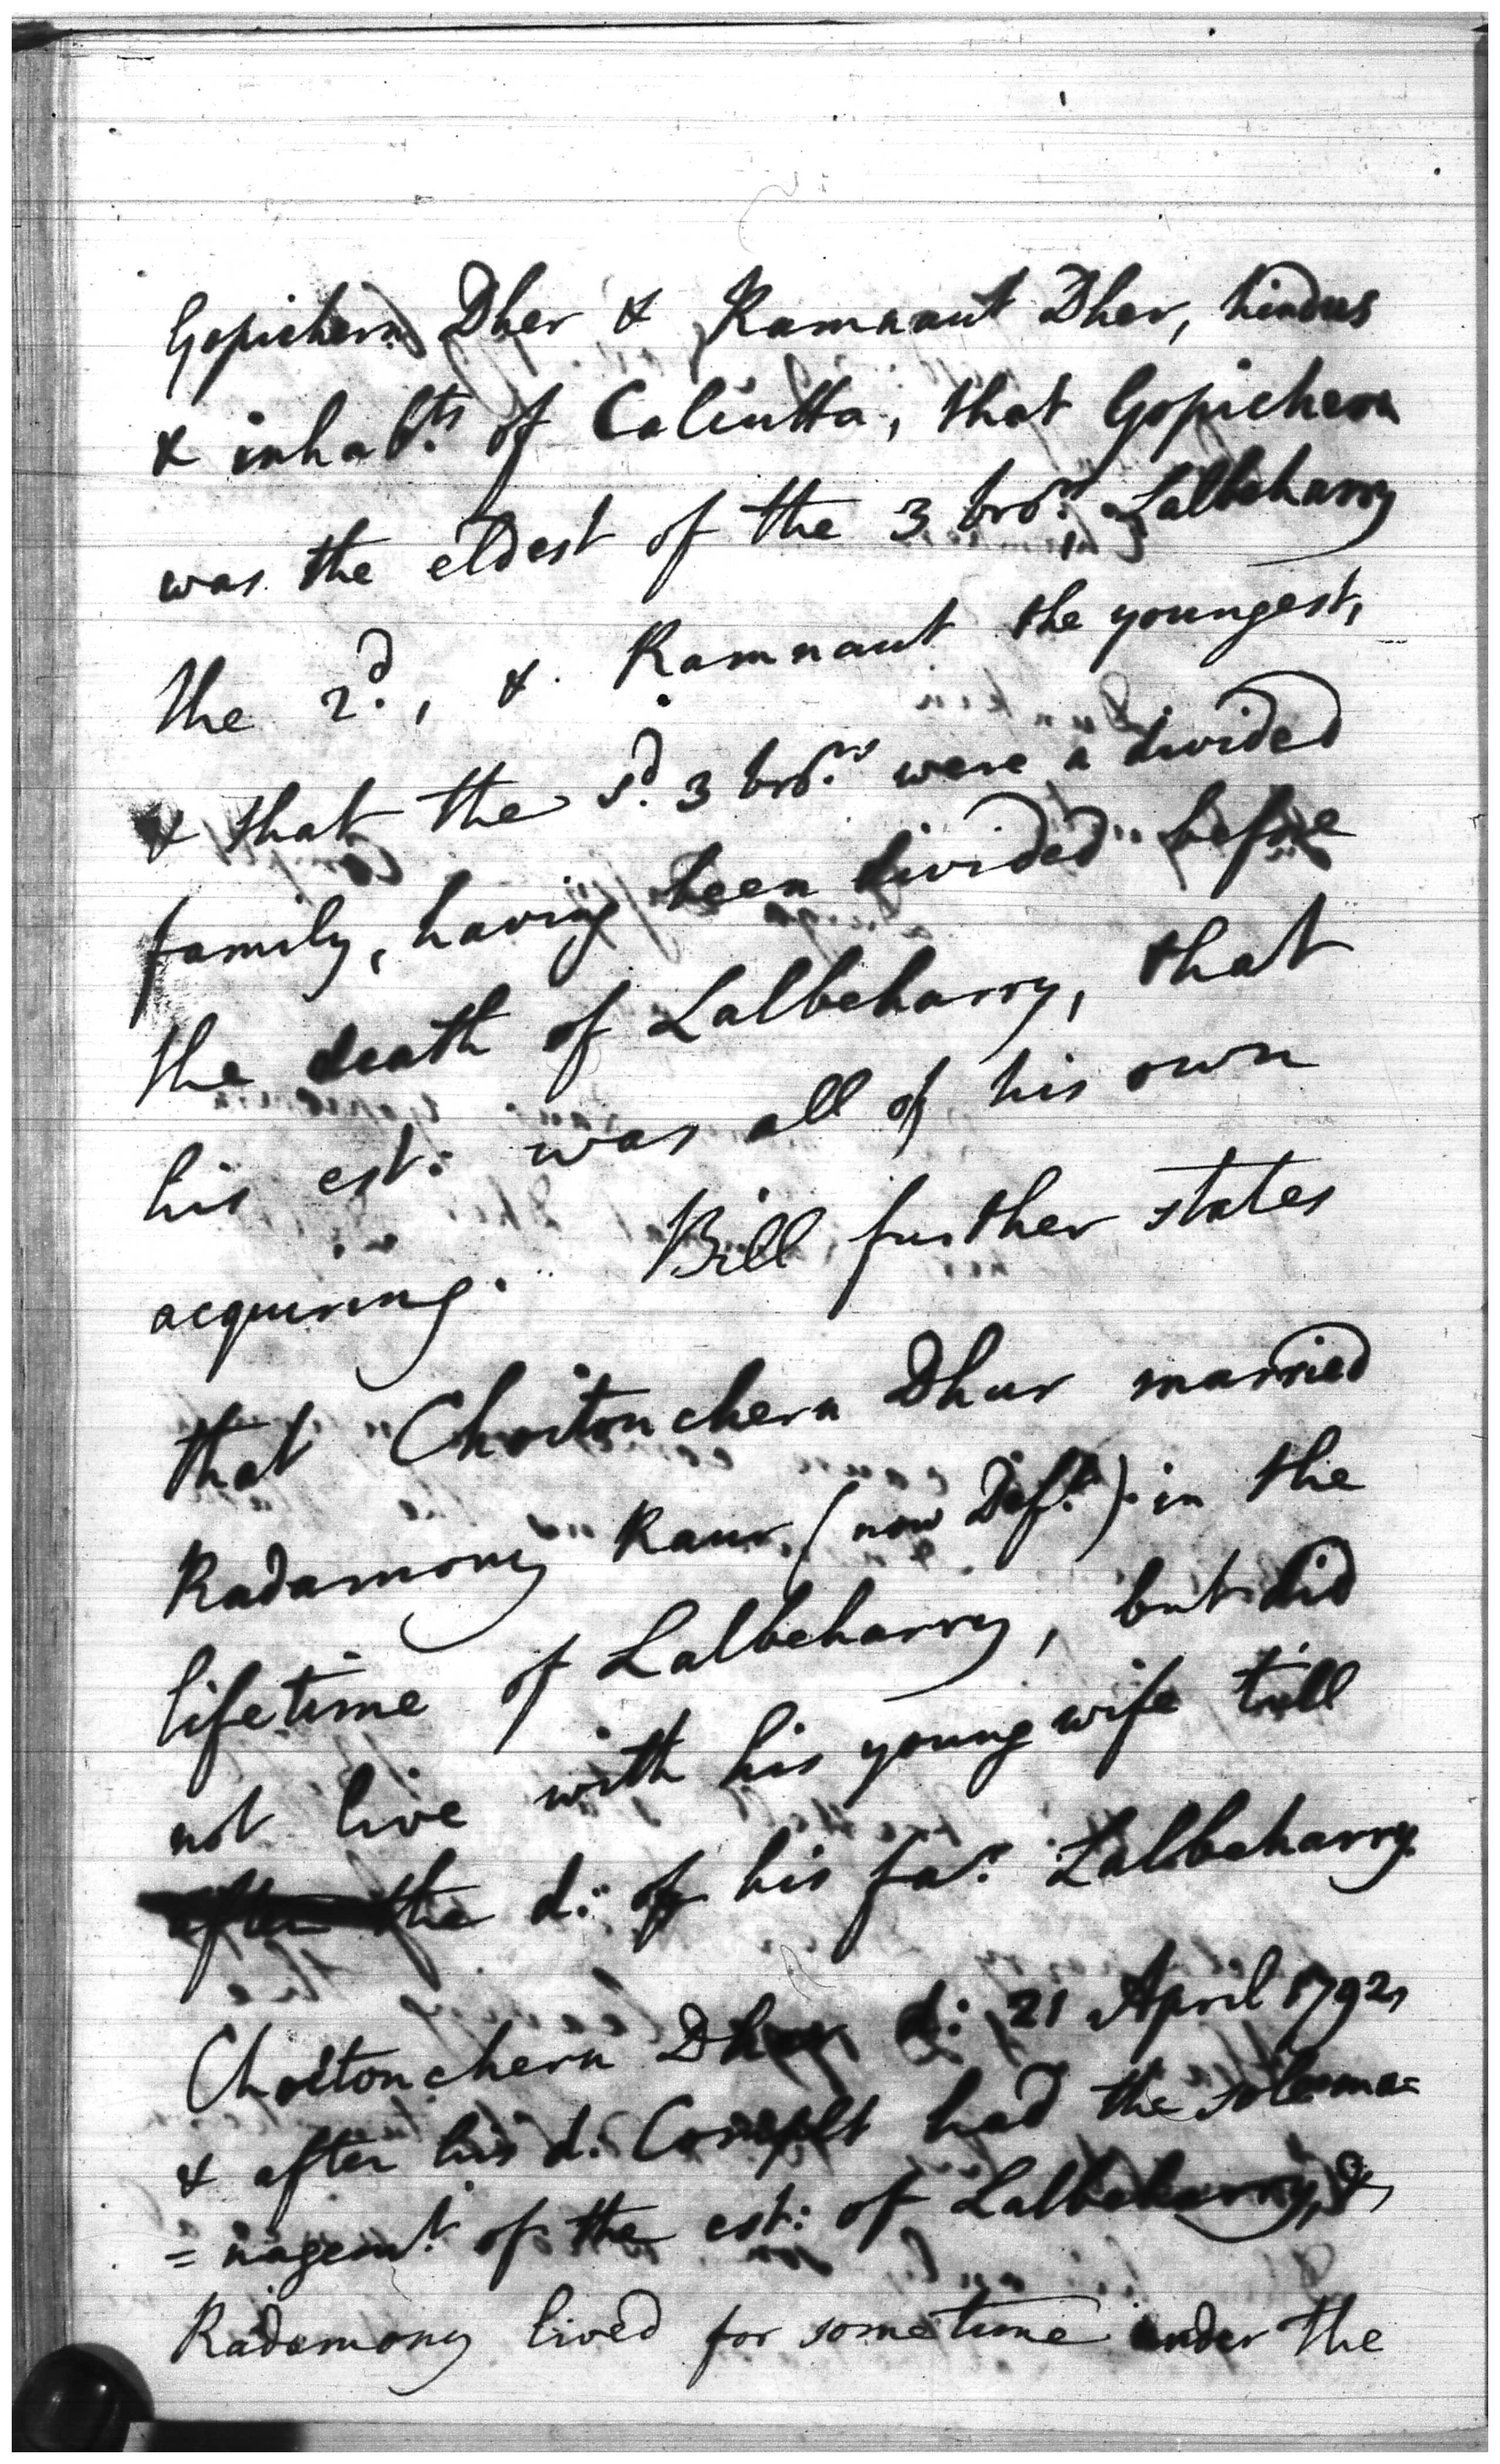 Gopichern Dher & Ramnaut Dher, hindus
& inhabts. of Calcutta, that Gopichern
was the eldest of the 3 bros. Lalbeharry
the 2d., & Ramnaut the youngest,
& that the sd. 3 bros. were a divided
family, having been divided before
the death of Lalbeharry, that
his est: was all of his own
acquiring. Bill further states
that Choitonchern Dhur married
Radamony Raur (now Deft.) in the
lifetime of Lalbeharry, but did
not live with his young wife till
after the d: of his far. Lalbeharry.
Choitonchern Dhur d: 21 April 1792,
& after his d: Complt had the sole ma=
=nagemt. of the est: of Lalbeharry, &
Radamony lived for sometime under the